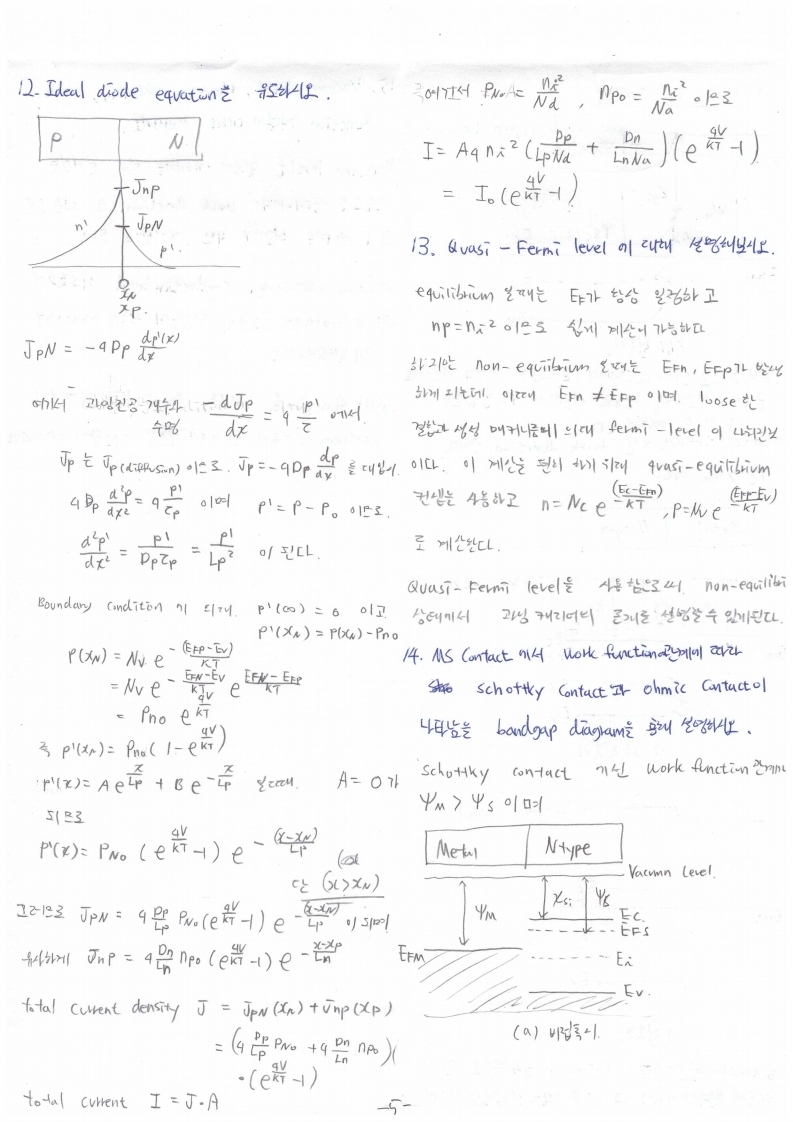 12. Ideal diode equation을 유도하시오.
P N
JnP
JPN
n' p'
xN
xP
JPN = -qDp dp'(x)/dx
여기서 과잉전공 개수와 수명 -dJp/dx = q p'/τ 에서
Jp 는 Jp(diffusion) 이므로. Jp = -qDp dp/dx 를 대입시
qDp d²p/dx² = q p'/τp 이며 p' = P - P₀ 이므로.
d²p'/dx² = p'/Dpτp = p'/Lp² 이 된다.
Boundary condition 에 의해. p'(∞) = 0 이고
p'(xN) = P(xN) - Pno
P(xN) = Nv e^-(EFP-Ev)/KT
= Nv e^-(EFN-Ev)/KT e^(EFN-EFP)/KT
= Pno e^qV/KT
즉 p'(xN) = Pno( 1 - e^qV/KT )
p'(x) = A e^x/Lp + B e^-x/Lp 일때. A = 0 가
되므로
P'(x) = PNo (e^qV/KT -1) e^-(x-xN)/LP
단 (x>xN)
그러므로 JPN = q Dp/Lp PNo (e^qV/KT -1) e^-(x-xN)/Lp 이 되며
유사하게 JnP = q Dn/Ln nPo (e^qV/KT -1) e^-x-xP/Ln
total current density J = JPN(xN) + Jnp(xP)
= (q Dp/Lp PNo + q Dn/Ln nPo)(
· (e^qV/KT -1)
total current I = J·A
즉 여기서 PNo = ni²/Nd , nPo = ni²/Na 이므로
I = Aq ni² (Dp/LpNd + Dn/LnNa)(e^qV/KT -1)
= I₀ (e^qV/KT -1)
13. Quasi - Fermi level 에 대해 설명해보시오.
equilibrium 일때는 EF가 항상 일정하고
np = ni² 이므로 쉽게 계산이 가능하다
하지만 non-equilibrium 일때는 EFn, EFp가 발생
하게 되는데. 이때 EFn ≠ EFp 이며. loose한
결합과 생성 메커니즘에 의해 fermi-level 이 나뉘진것
이다. 이 계산을 편리 하기 위해 quasi-equilibrium
컨셉을 사용하고 n = Nc e^-(Ec-EFn)/KT , P = Nv e^-(EFP-Ev)/KT
로 계산한다.
Quasi-Fermi level을 사용함으로써. non-equilibri
상태에서 과잉 캐리어의 존재를 설명할 수 있게된다.
14. MS Contact 에서 work function관계에 따라
schottky contact과 ohmic contact이
나타남을 bandgap diagram을 통해 설명하시오.
schottky contact 에선 work function 관계에서
ΨM > ΨS 이며
Metal N type
Vacumn Level.
ΨM χsi ΨS
Ec.
EFS
EFM
Ei
Ev.
(a) 비접촉시.
-5-